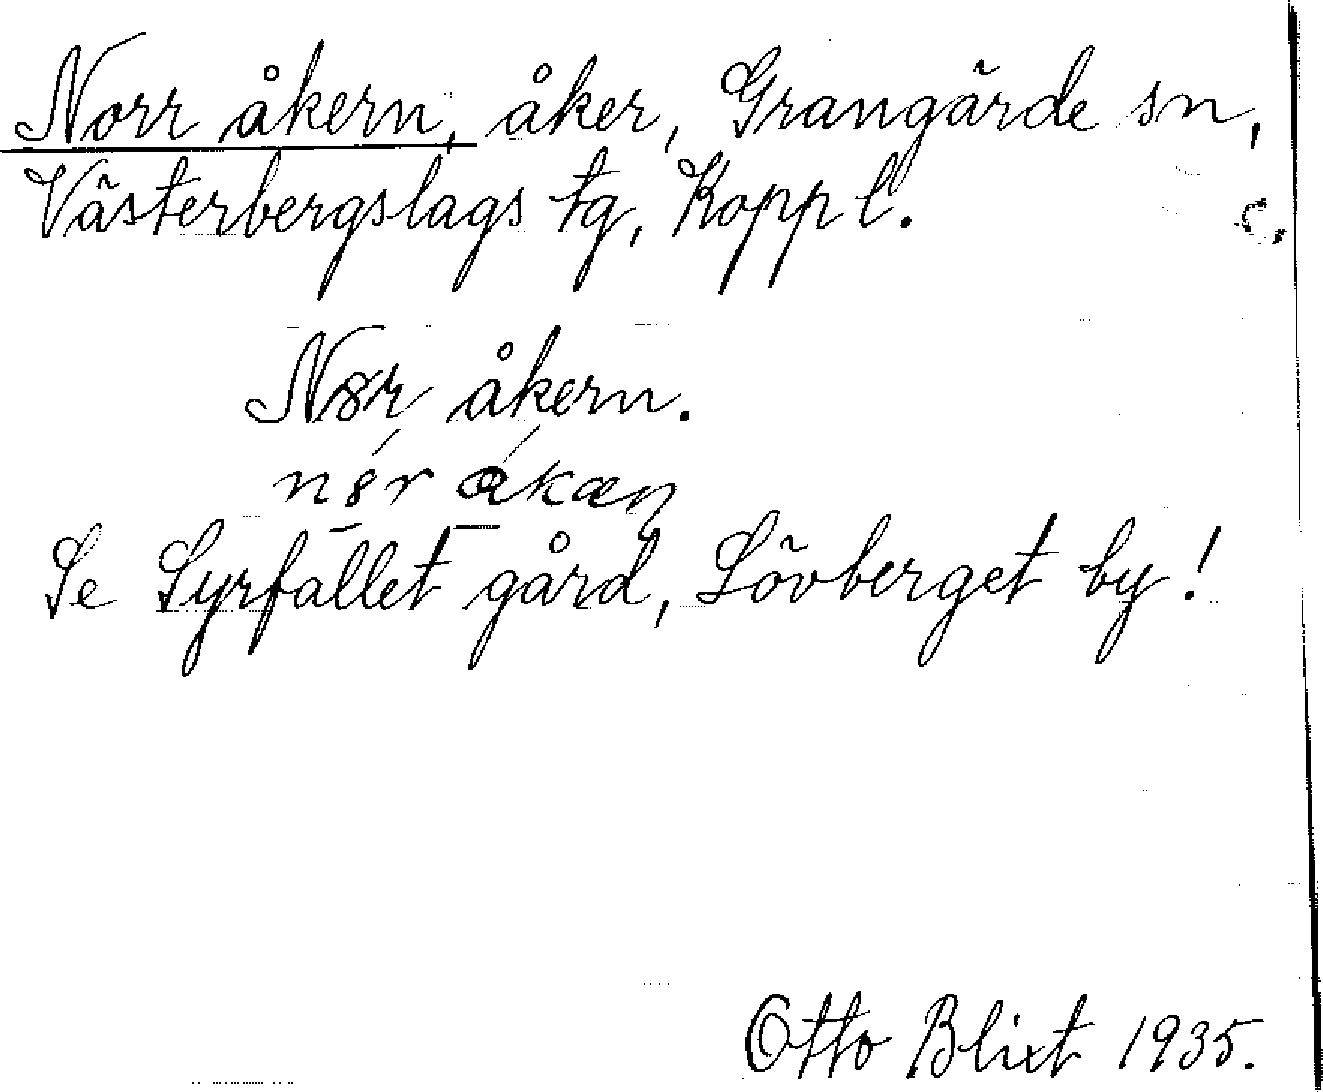 Norr åkern, åker, Grangärde sn,
Västerbergslags tg, Kopp l.
Nȣr åkern.
Se Syrfallet gård, Lövberget by!
Otto Blixt 1935.